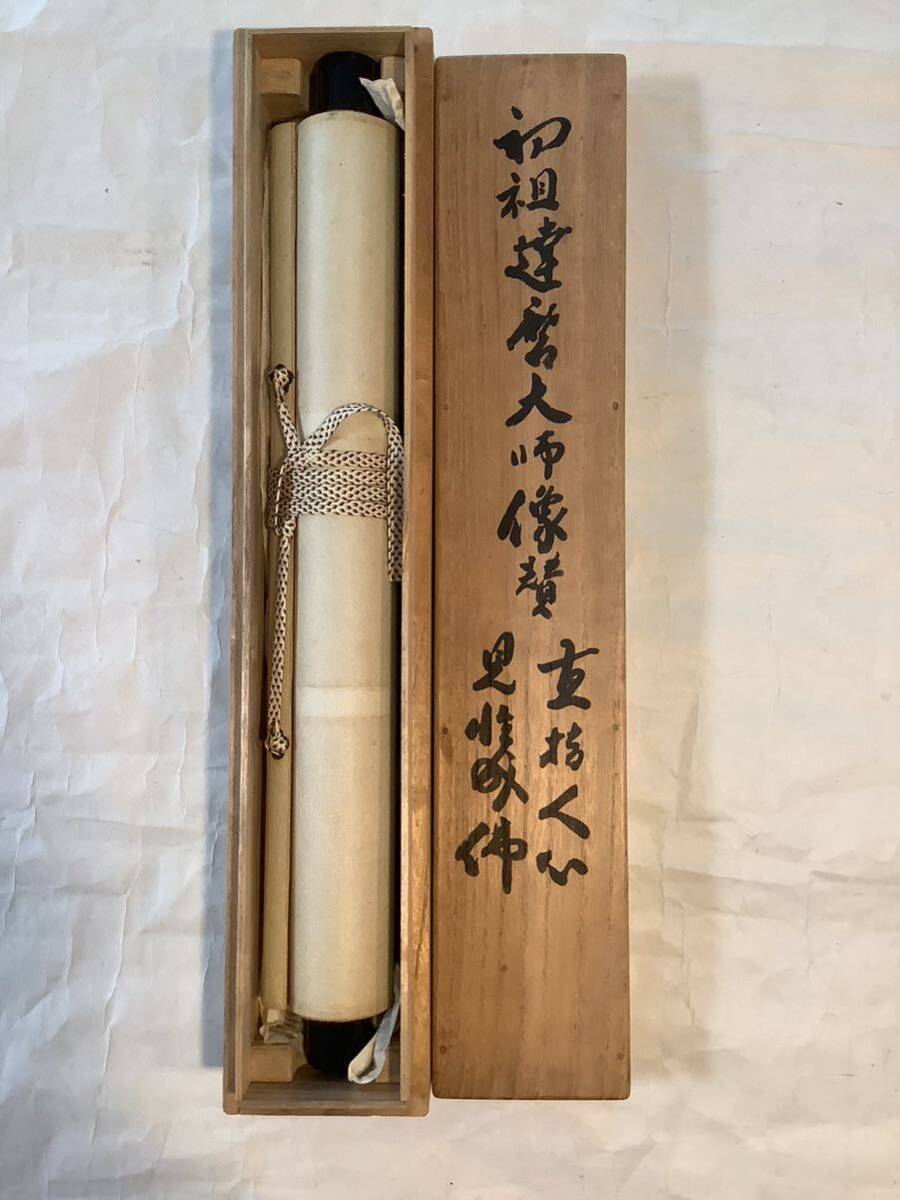 初祖達磨大師像賛
直指人心
見性成佛